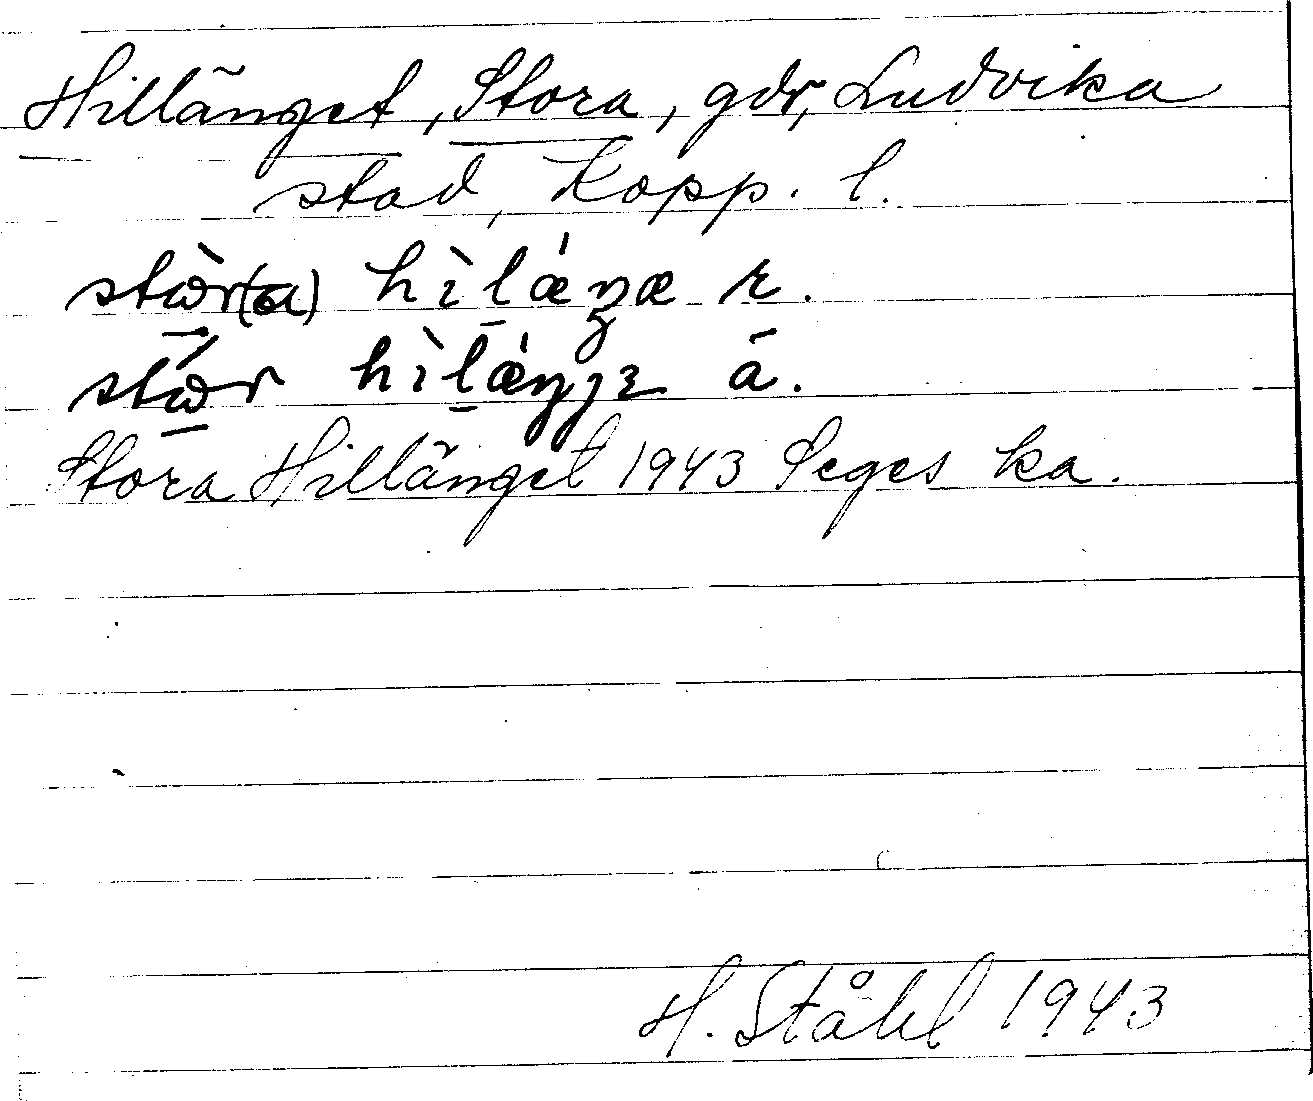 Hillänget, Stora, gdr, Ludvika
stad, Kopp. l.
stɷ̀r(a) hìlǽŋæ r.
stɷ́r hìlǽŋɟɛ ä.
Stora Hillänget 1943 Seges ka.
H. Ståhl 1943